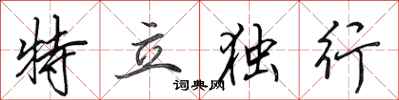 特立独行
词典网